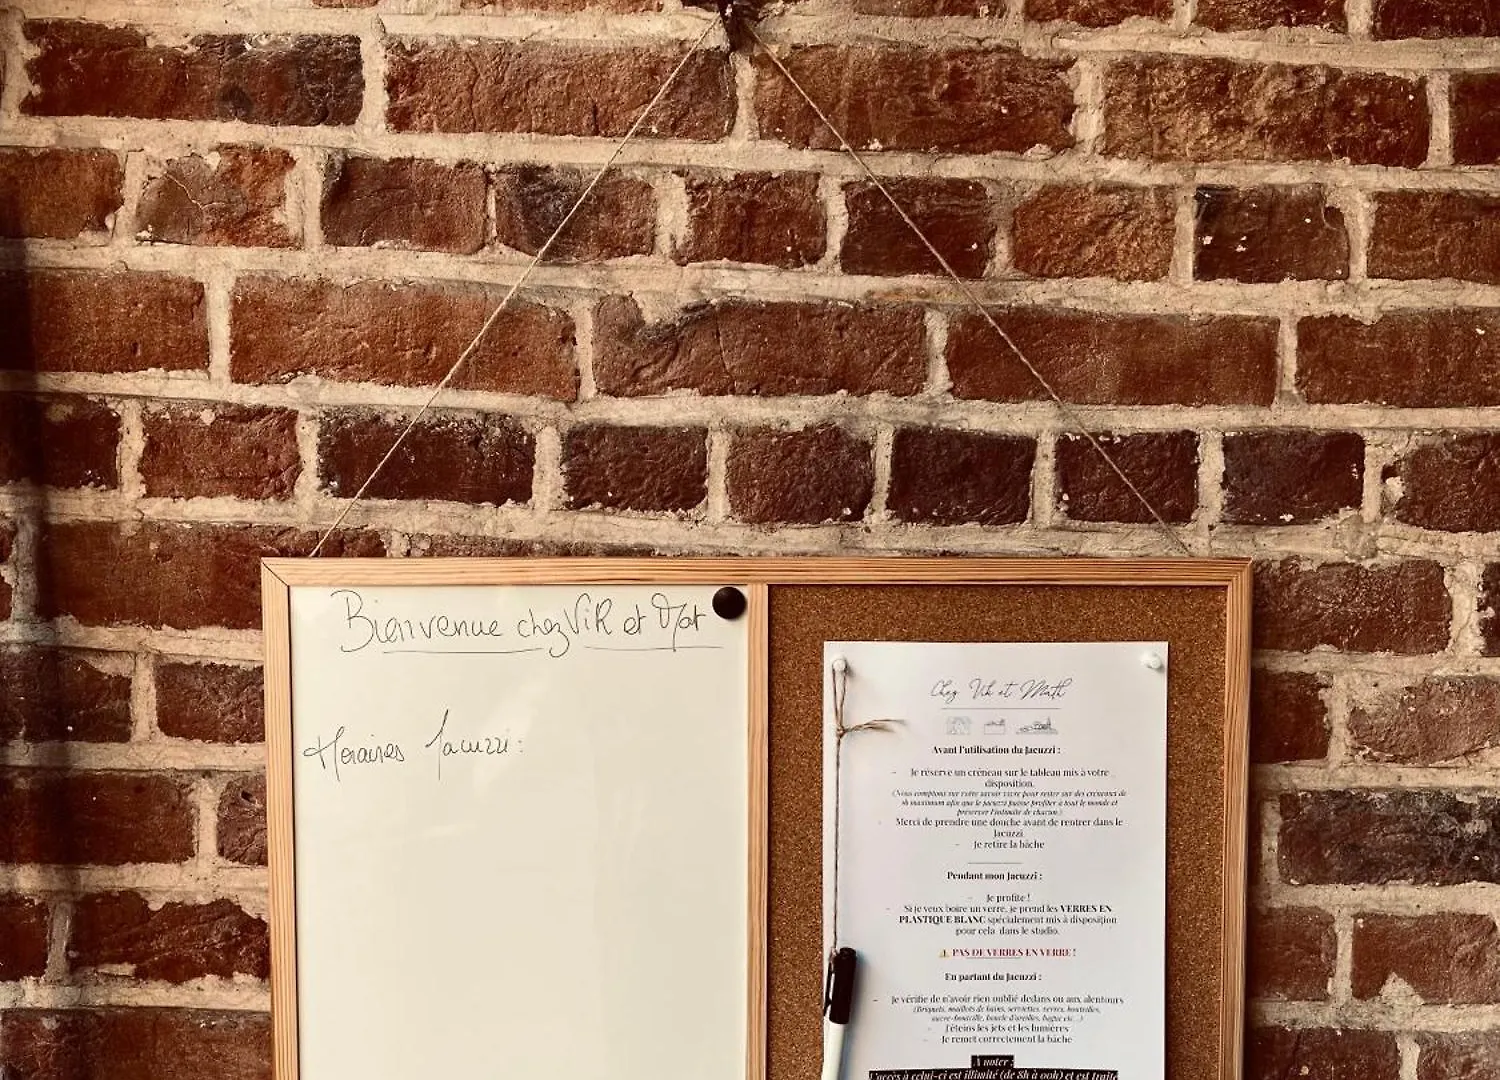 Bienvenue chez Vik et Mat
Horaires Jacuzzi :
Chez Vik et Math
Avant l'utilisation du Jacuzzi :
- Je réserve un créneau sur le tableau mis à votre
disposition.
(Nous comptons sur votre savoir vivre pour rester sur des créneaux de
1h maximum afin que le jacuzzi puisse profiter à tout le monde et
préserver l'intimité de chacun.)
- Merci de prendre une douche avant de rentrer dans le
Jacuzzi.
- Je retire la bâche
Pendant mon Jacuzzi :
- Je profite !
- Si je veux boire un verre, je prend les VERRES EN
PLASTIQUE BLANC spécialement mis à disposition
pour cela dans le studio.
⚠️ PAS DE VERRES EN VERRE !
En partant du Jacuzzi :
- Je vérifie de n'avoir rien oublié dedans ou aux alentours
(Briquets, maillots de bains, serviettes, verres, bouteilles,
ouvre-bouteille, boucle d'oreilles, bague etc...)
- J'éteins les jets et les lumières
- Je remet correctement la bâche
A noter :
L'accès à celui-ci est illimité (de 8h à 00h) et est traité